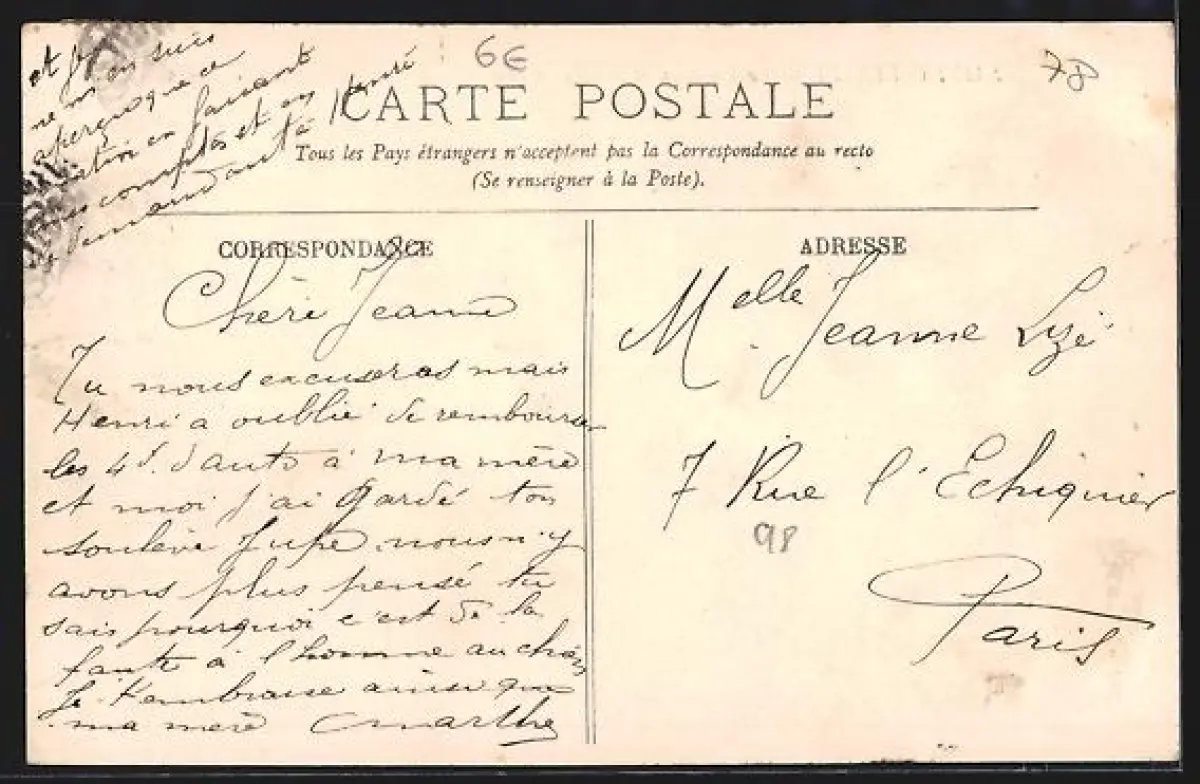 6€
78
et je
ne m'en suis
aperçu que ce
en faisant
mes comptes et en
demandant à
CARTE POSTALE
Tous les Pays étrangers n'acceptent pas la Correspondance au recto
(Se renseigner à la Poste).
CORRESPONDANCE
Chère Jeanne
Tu nous excuseras mais
Henri a oublié de rembourser
les 4f. d'auto à ma mère
et moi j'ai gardé ton
soulève Jupe, nous n'y
avons plus pensé tu
sais pourquoi c'est de la
faute à l'homme au
Je t'embrasse ainsi que
ma mère Marthe
ADRESSE
Melle Jeanne Lizé
7 Rue l'Echiquier
98
Paris